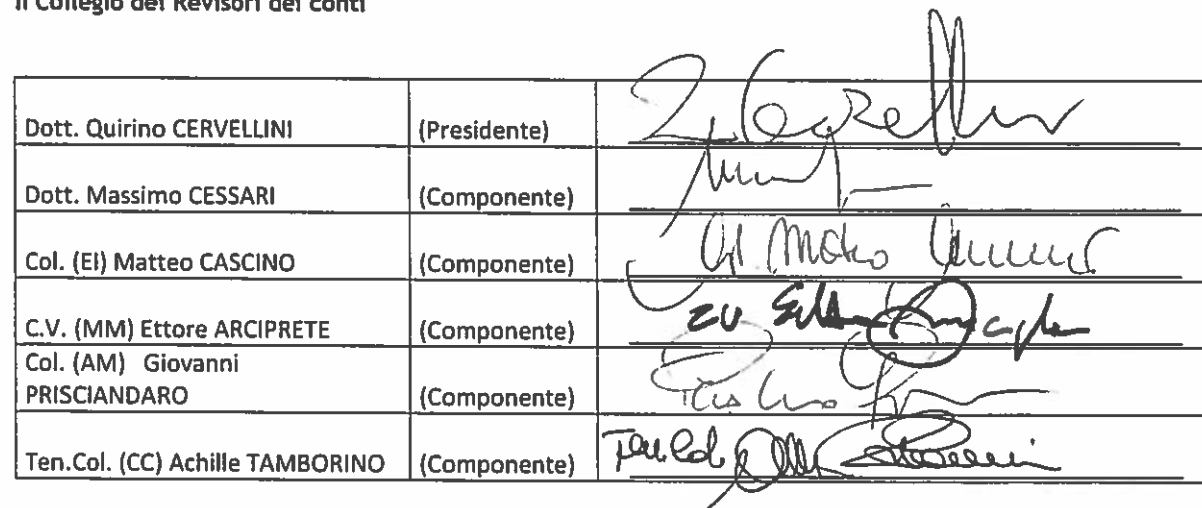 Il Collegio dei Revisori dei conti
Dott. Quirino CERVELLINI (Presidente)
Dott. Massimo CESSARI (Componente)
Col. (EI) Matteo CASCINO (Componente)
C.V. (MM) Ettore ARCIPRETE (Componente)
Col. (AM) Giovanni
PRISCIANDARO (Componente)
Ten.Col. (CC) Achille TAMBORINO (Componente)